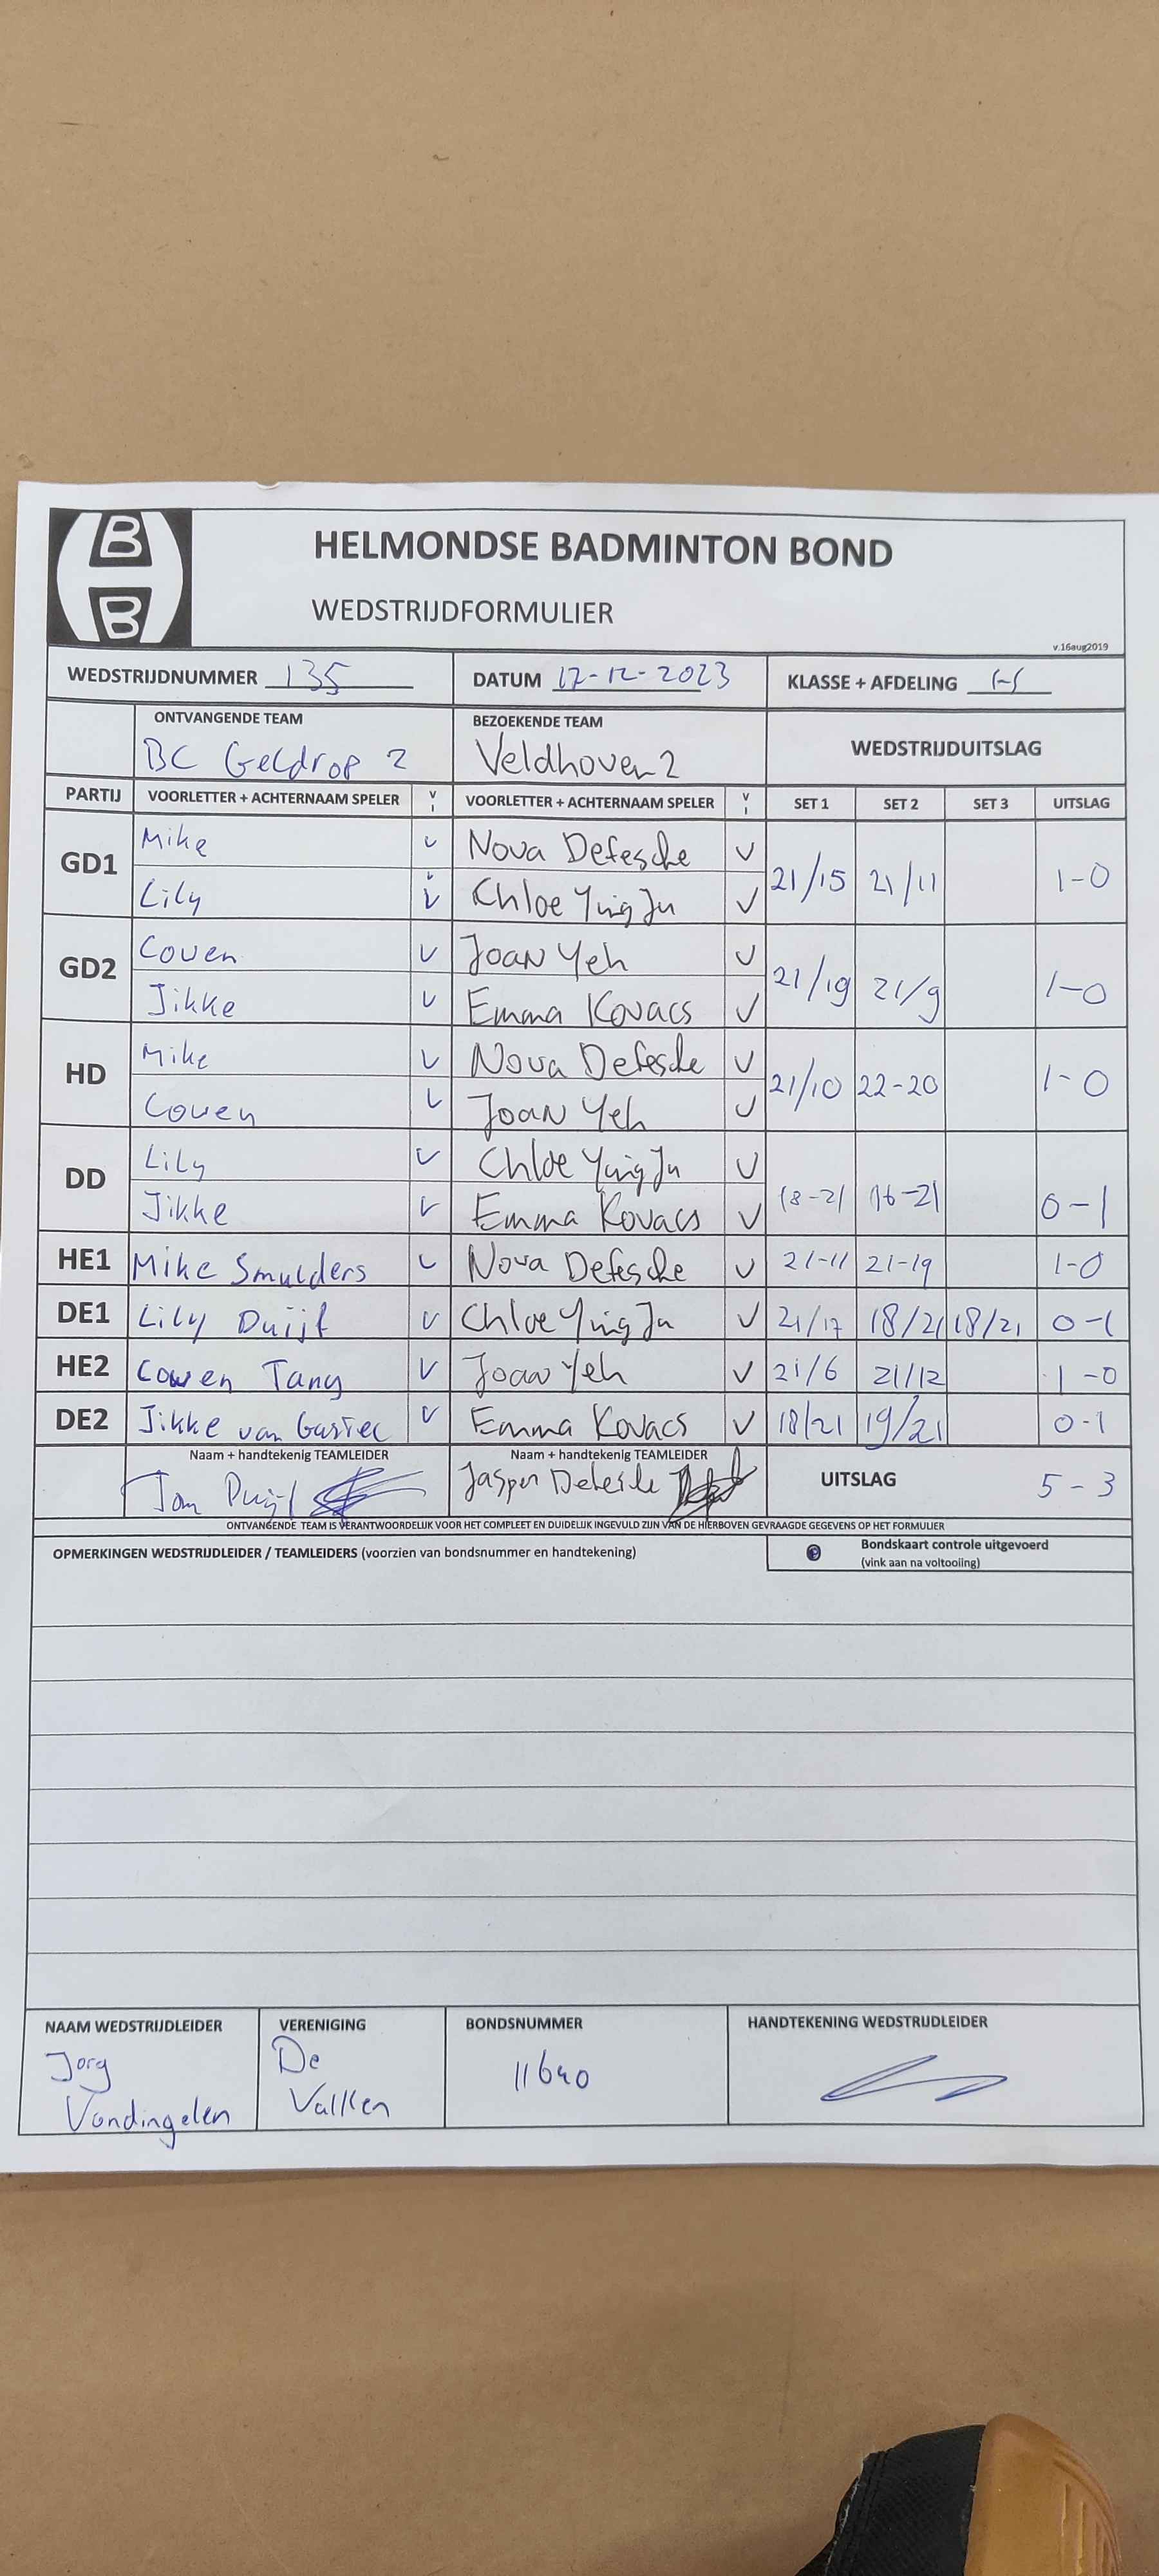 B
B
HELMONDSE BADMINTON BOND
WEDSTRIJDFORMULIER
v.16aug2019
WEDSTRIJDNUMMER 135 DATUM 17-12-2023 KLASSE + AFDELING
ONTVANGENDE TEAM BEZOEKENDE TEAM WEDSTRIJDUITSLAG
BC Geldrop 2 Veldhoven 2
PARTIJ VOORLETTER + ACHTERNAAM SPELER V I VOORLETTER + ACHTERNAAM SPELER V I SET 1 SET 2 SET 3 UITSLAG
GD1 Mike v Nova Defesche v 21/15 21/11 1-0
Lily v Chloe Ying Ju v
GD2 Couen v Joan Yeh v 21/19 21/9 1-0
Jikke v Emma Kovacs v
HD Mike v Nova Defesche v 21/10 22-20 1-0
Couen v Joan Yeh v
DD Lily v Chloe Ying Ju v 18-21 16-21 0-1
Jikke v Emma Kovacs v
HE1 Mike Smulders v Nova Defesche v 21-11 21-19 1-0
DE1 Lily Duijf v Chloe Ying Ju v 21/17 18/21 18/21 0-1
HE2 Couen Tang v Joan Yeh v 21/6 21/12 1-0
DE2 Jikke van v Emma Kovacs v 18/21 19/21 0-1
Naam + handtekenig TEAMLEIDER Naam + handtekenig TEAMLEIDER UITSLAG 5-3
Jasper
ONTVANGENDE TEAM IS VERANTWOORDELIJK VOOR HET COMPLEET EN DUIDELIJK INGEVULD ZIJN VAN DE HIERBOVEN GEVRAAGDE GEGEVENS OP HET FORMULIER
OPMERKINGEN WEDSTRIJDLEIDER / TEAMLEIDERS (voorzien van bondsnummer en handtekening) Bondskaart controle uitgevoerd
(vink aan na voltooiing)
NAAM WEDSTRIJDLEIDER VERENIGING BONDSNUMMER HANDTEKENING WEDSTRIJDLEIDER
Jorg De 11640
Vondingelen Valken